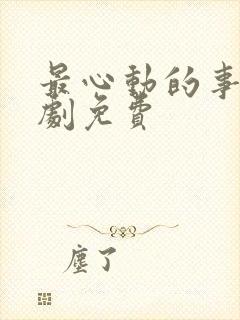 最心動的事
劇免費
塵了